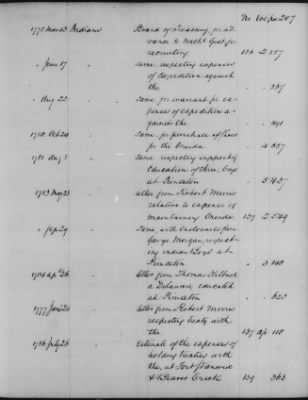 No Vol. pa 207
1778 Mar 3 Indians Board of Treasury, for ad-
vance to Nathl Gist for
recruiting 136 2 157
" June 17 " same, respecting expenses
of Expedition against
the 367
" Aug 22 " Same, for warrant for ex-
penses of expedition a-
gainst the 491
1780 Oct 24 " Same, for purchase of
for the Oneida 4 357
1781 Aug 8 " Same, respecting support &
Education of three boys
at Princeton 5 437
1783 May 23 " letter from Robert Morris
relative to expense of
maintaining Oneida 137 2 549
" Sep 29 " Same, with enclosures from
George Morgan, respect-
ing indian Boys at
Princeton 3 143
1784 ap 26 " letter from Thomas Killbuck
a Delaware, educated
at Princeton
1777 Jan 20 " letter from Robert Morris
respecting treaty with
the 137 ap 110
1784 July 26 " Estimate of the expenses of
holding treaties with
the, at Fort Stanwix
& Beaver Creek 139 363